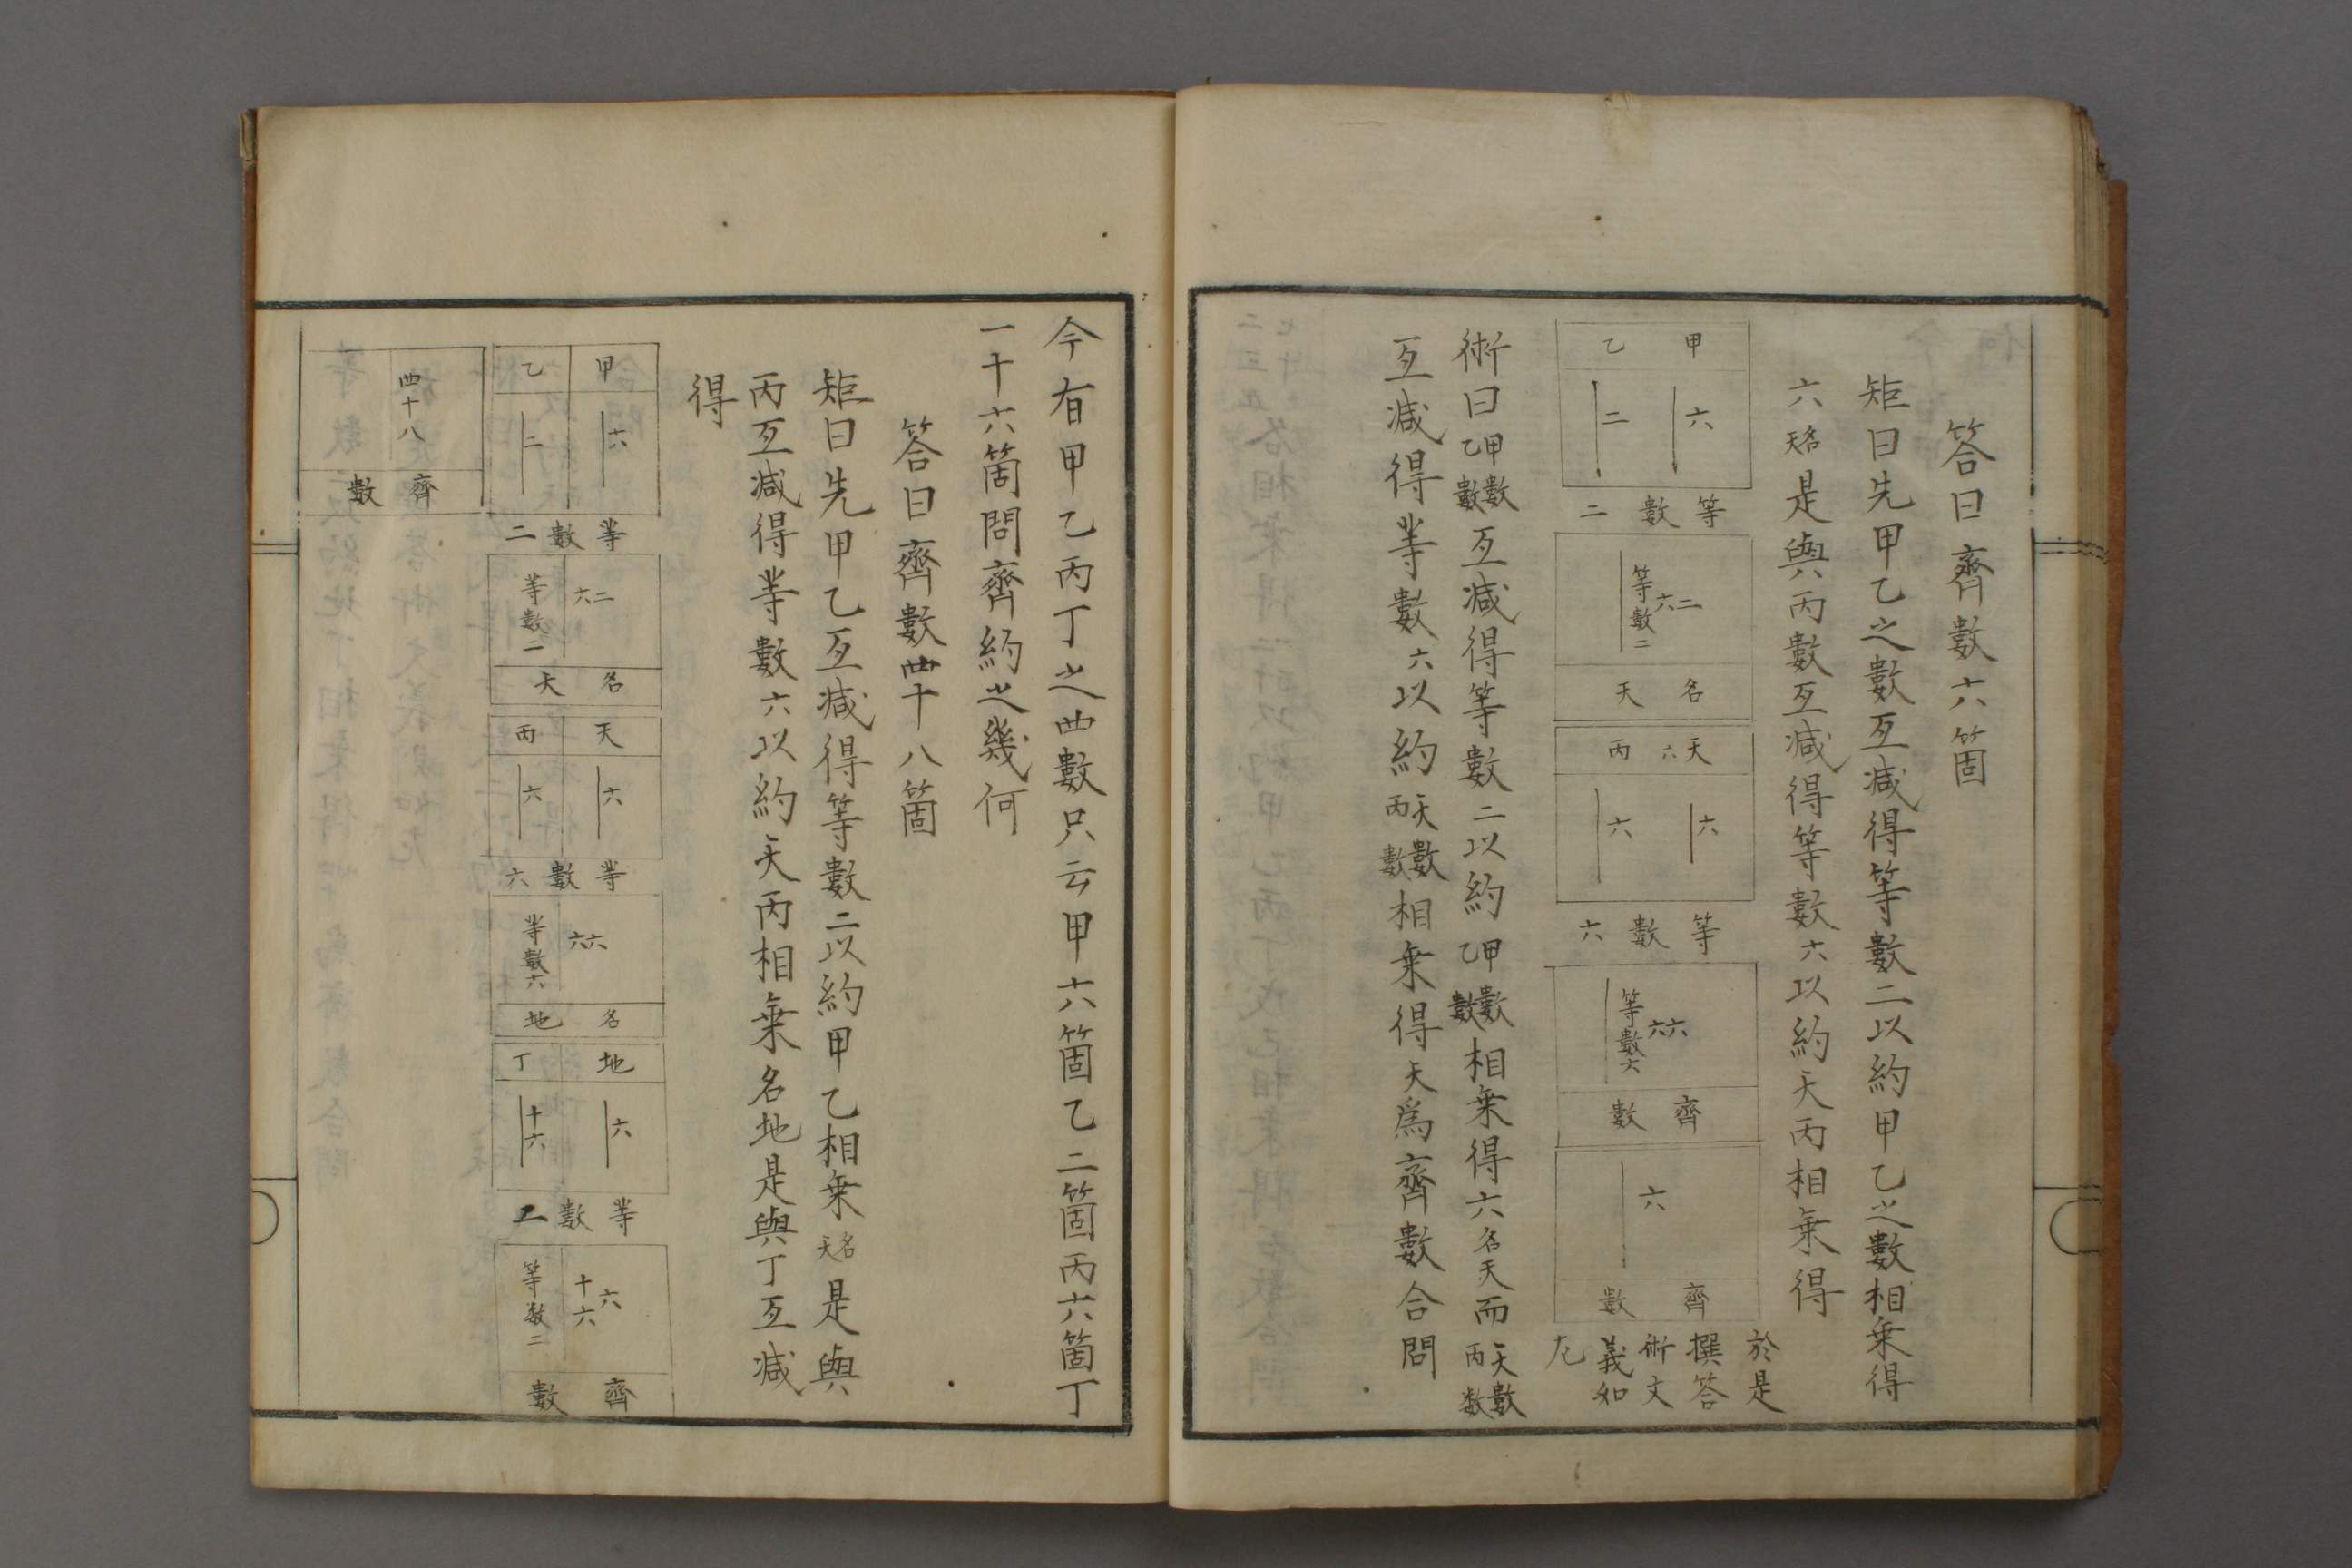 答曰齊數六箇
矩曰先甲乙之數互減得等數二以約甲乙之數相乗得
六名天是與丙數互減得等數六以約天丙相乗得
甲 乙
六 二
等數二
二六 等數二
名天
天六 丙
六 六
等數六
六六 等數六
齊數
六
齊數
於是
撰答
術文
義如
左
術曰甲數乙數互減得等數二以約甲數乙數相乗得六名天而天數丙数
互減得等數六以約天數丙數相乗得天為齊數合問
今有甲乙丙丁之四數只云甲六箇乙二箇丙六箇丁
一十六箇問齊約之幾何
答曰齊數四十八箇
矩曰先甲乙互減得等數二以約甲乙相乗名天是與
丙互減得等數六以約天丙相乗名地是與丁互減
得
甲 乙
六 二
等數二
二六 等數二
名天
天 丙
六 六
等數六
六六 等數六
名地
地 丁
六 十六
等數二
六十六 等数二
齊數
四十八
齊數